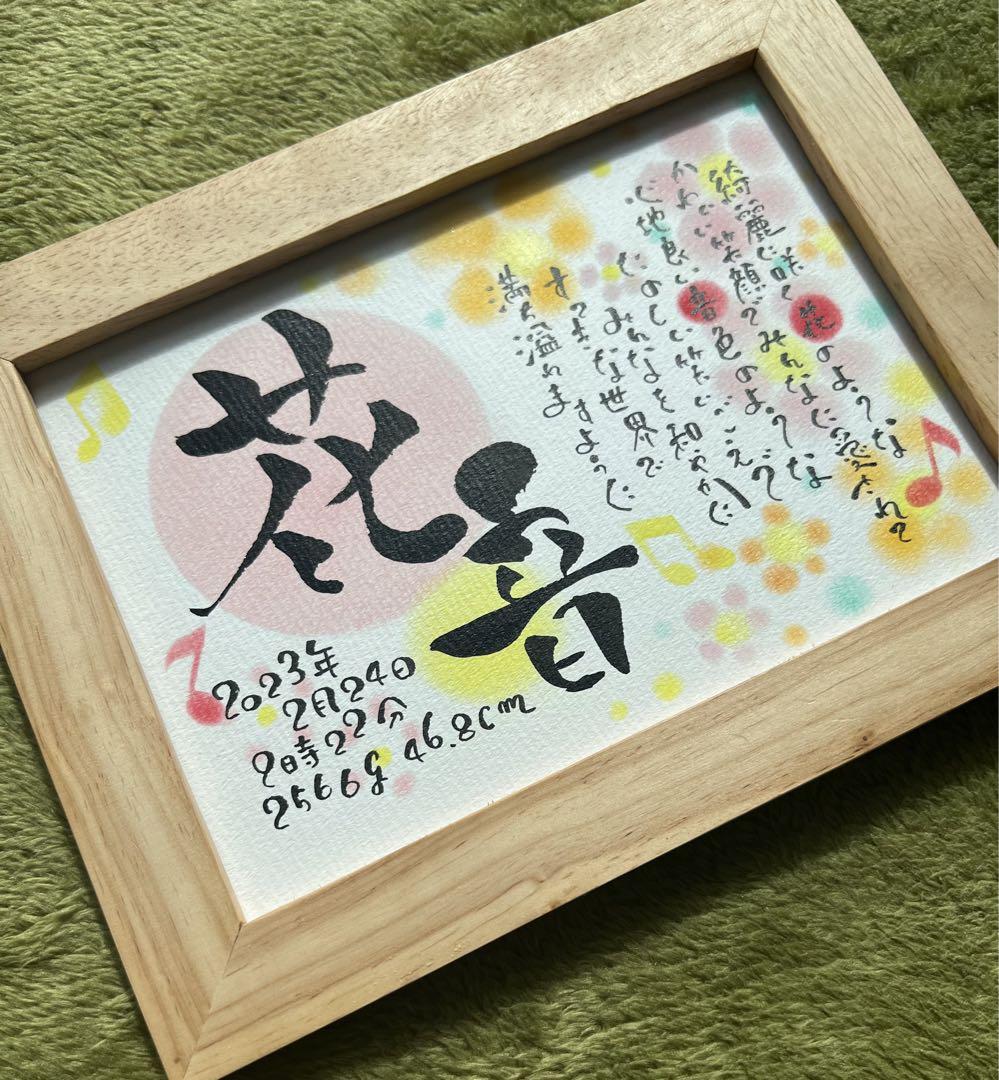 花音
2023年
2月24日
9時22分
2566g 46.8cm
綺麗に咲く花のような
かわいい笑顔でみんなに愛されて
心地良い音色のような
たのしい笑いごえで
みんなを和やかに
すてきな世界で
満ち溢れますように